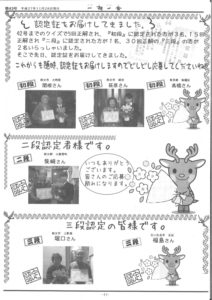 平成27年11月26日発行
一期一会
認定証をお届けしてきました。
42号までのクイズで5回正解され、『初段』に認定された方が3名、15回
正解され『二段』に認定された方が1名、30回正解の『三段』の方が
2名いらっしゃいました。
そこで、認定証をお渡ししてきました。
これからも随時、認定証お届けしますのでどしどし応募してくださいね♪
初段
初段
初段
高橋さん
二段認定者様です。
二段
柴崎さん
いつもありがとう
ございます。
皆さんのご応募
励みになります。
三段認定の皆様です。
三段
堀口さん
三段
福島さん